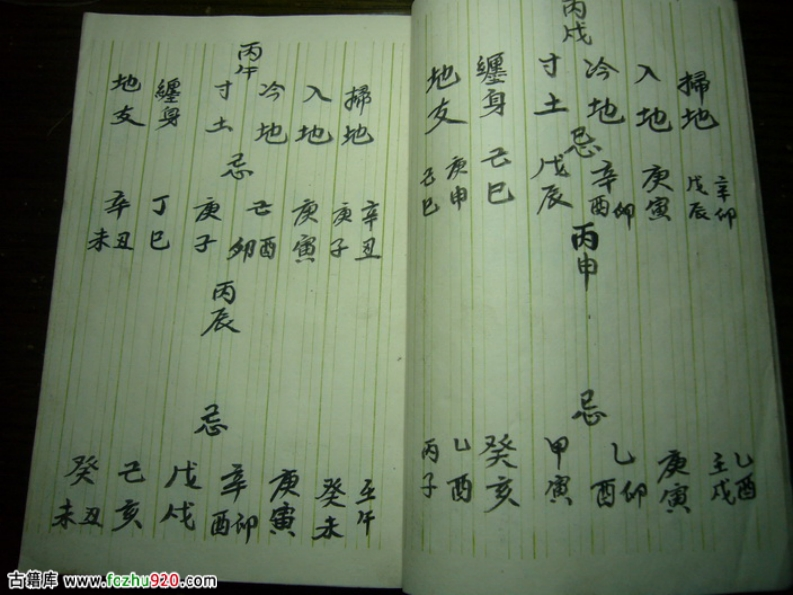 丙戌
掃地 入地 冷地 寸土 纏身 地支
忌
辛卯 戊辰 庚寅 辛酉卯 戊辰 己巳 庚申 己巳
丙申
忌
乙酉 壬戌 庚寅 乙酉卯 甲寅 癸亥 乙酉 丙子
丙午
掃地 入地 冷地 寸土 纏身 地支
忌
辛丑 庚子 庚寅 己酉卯 庚子 丁巳 辛丑未
丙辰
忌
壬午 癸未 庚寅 辛酉卯 戊戌 己亥 癸丑未
古籍库 www.fozhu920.com